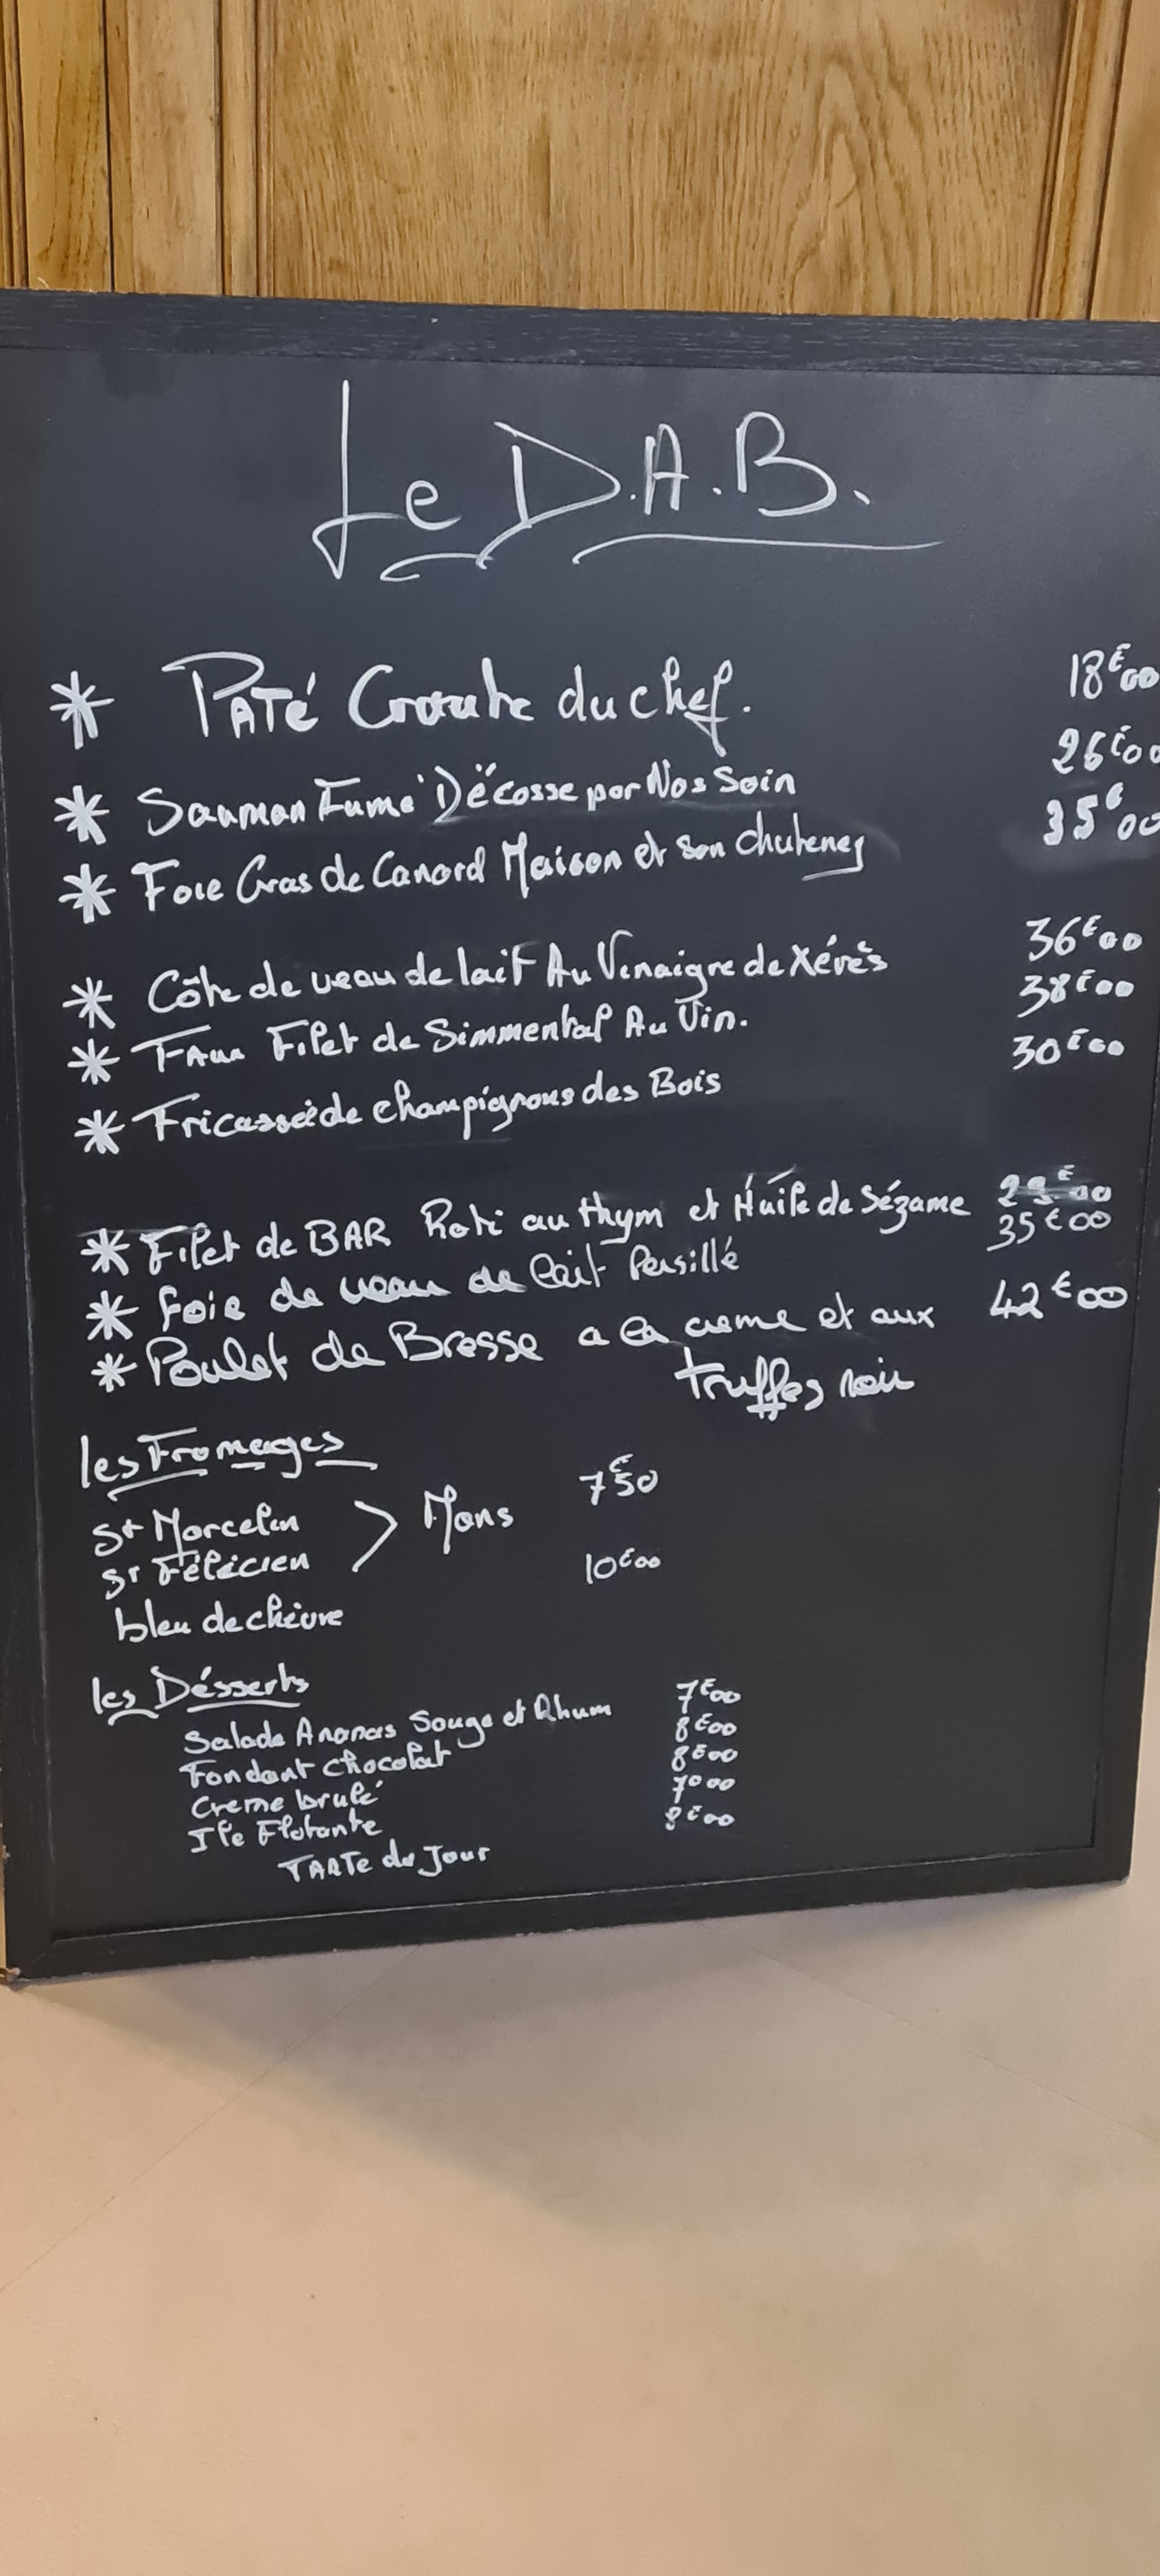 Le D.A.B.
* PATé Croute du chef. 18€00
* Sauman Fumé D'Ëcosse par Nos Soin 26€00
* Foie Gras de Canard Maison et son chuteney 35€00
* Côte de veau de lait Au Vinaigre de Xérès 36€00
* FAux Filet de Simmental Au Vin. 38€00
* Fricassée de champignons des Bois 30€00
* Filet de BAR Roti au thym et Huile de Sézame €00
* foie de veau de lait Persillé 35€00
* Poulet de Bresse a la creme et aux 42€00
truffes noir
les Fromages
St Marcelin > Mons 7€50
St Félicien
bleu de chèvre 10€00
les Désserts
Salade Ananas Souge et Rhum 7€00
Fondant chocolat 8€00
Creme brulé 8€00
Ile Flotante 7€00
TARTe du Jour 8€00